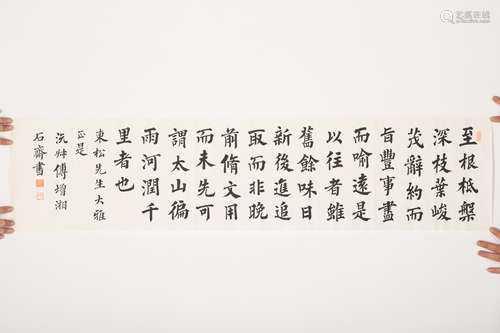 至根柢槃
深枝葉峻
茂辭約而
旨豐事盡
而喻遠是
以往者雖
舊餘味日
新後進追
取而非晚
前脩文用
而未先可
謂太山徧
雨河潤千
里者也
東松先生大雅
正是
沅叔傅增湘
石齋書